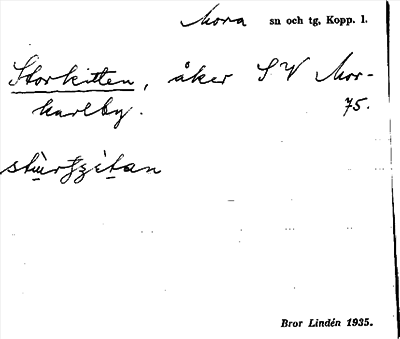 Mora sn och tg, Kopp. l.
Storkitten, åker SV Mor-
karlby. 75.
Bror Lindén 1935.